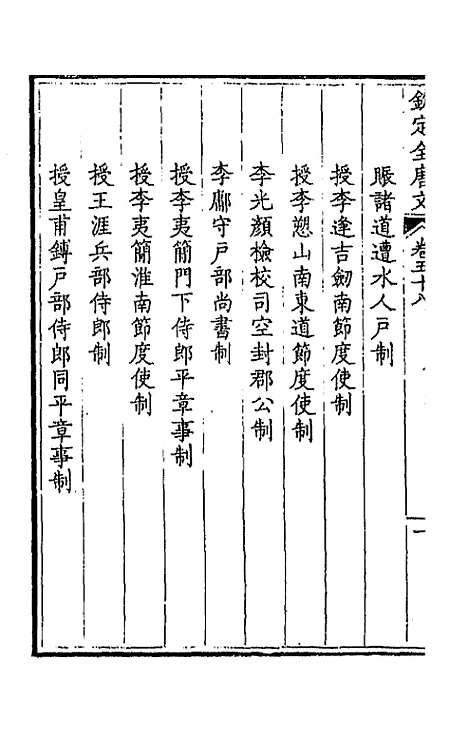 欽定全唐文 卷五十八 一
賑諸道遭水人戸制
授李逢吉劒南節度使制
授李愬山南東道節度使制
李光顏檢校司空封郡公制
李鄘守戸部尚書制
授李夷簡門下侍郎平章事制
授李夷簡淮南節度使制
授王涯兵部侍郎制
授皇甫鎛戸部侍郎同平章事制